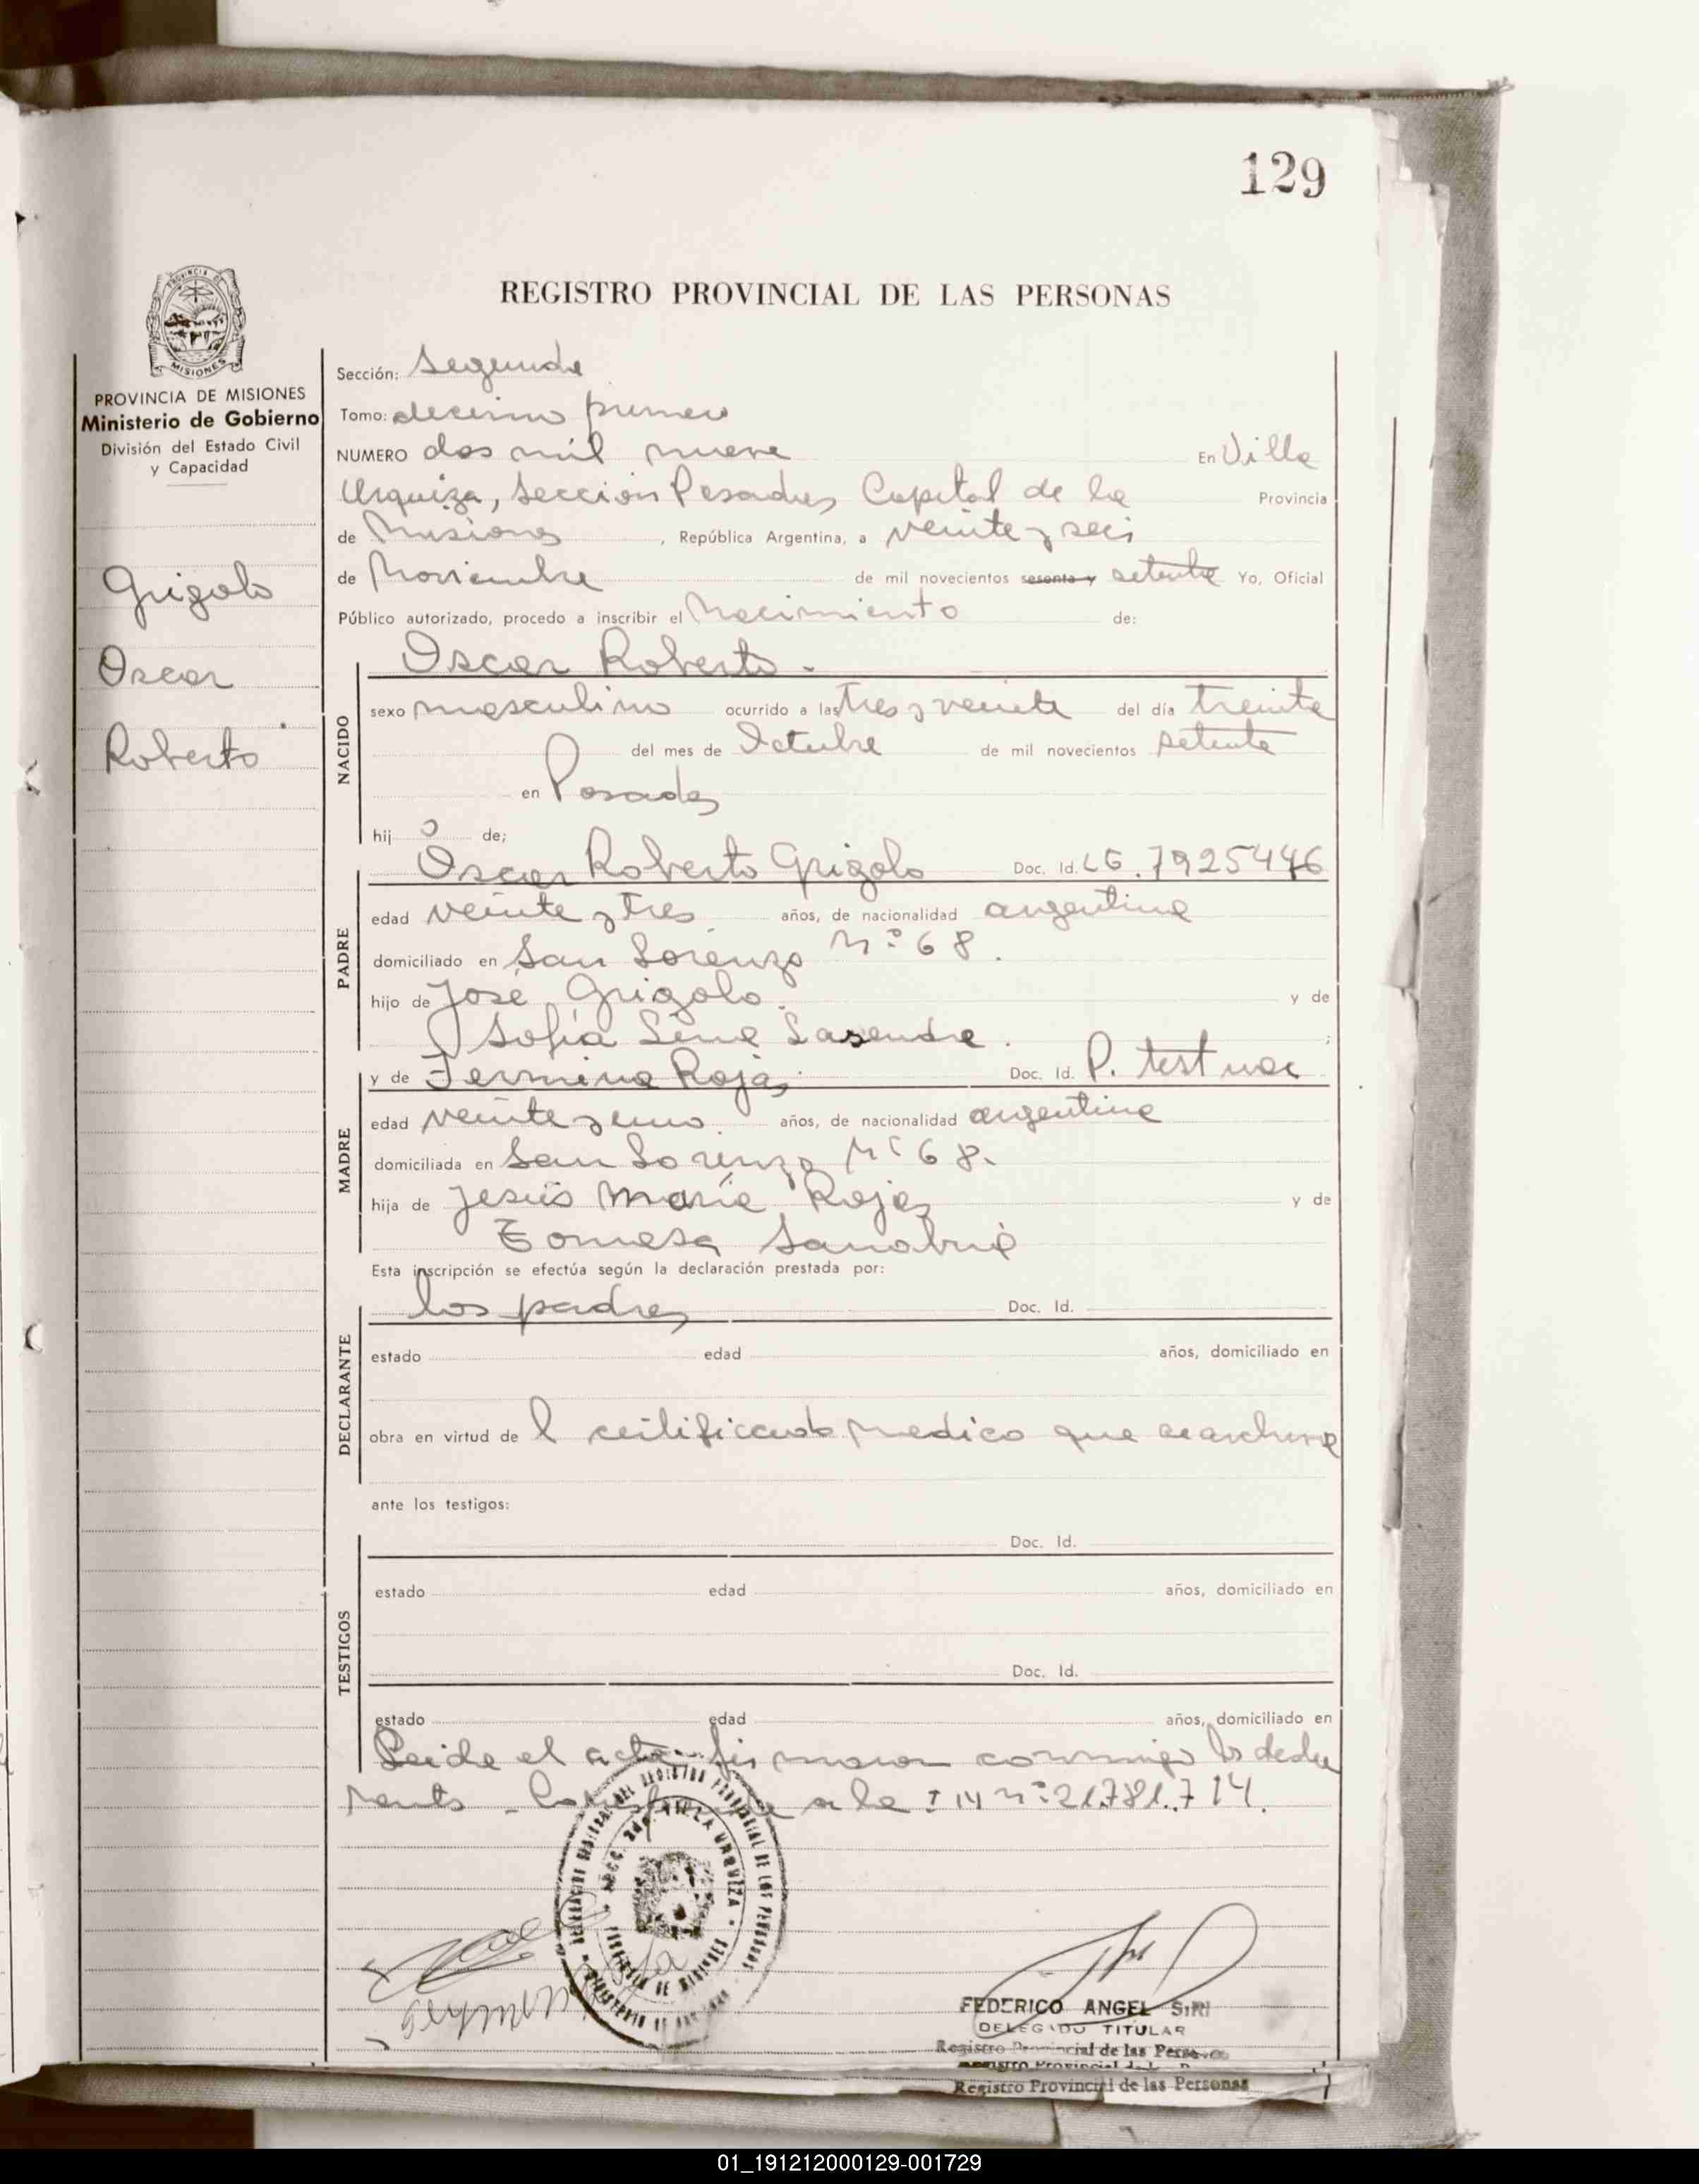 129
REGISTRO PROVINCIAL DE LAS PERSONAS
PROVINCIA DE MISIONES
Ministerio de Gobierno
División del Estado Civil
y Capacidad
Grigolo
Oscar
Roberto
Sección: Segunda
Tomo: decimo primero
NUMERO dos mil nueve En Villa
Urquiza, Seccion Posadas Capital de la Provincia
de Misiones, República Argentina, a veinte y seis
de Noviembre de mil novecientos sesenta y setenta Yo, Oficial
Público autorizado, procedo a inscribir el Nacimiento de:
NACIDO
Oscar Roberto.
sexo masculino ocurrido a las tres y veinte del día treinta
del mes de Octubre de mil novecientos setenta
en Posadas
hijo de;
PADRE
Oscar Roberto Grigolo Doc. Id. LE. 7925446
edad veinte y tres años, de nacionalidad argentina
domiciliado en San Lorenzo Nº 68.
hijo de José Grigolo. y de
Sofía
MADRE
y de Fermina Rojas Doc. Id. P. test nac
edad veinte y uno. años, de nacionalidad argentina
domiciliada en San Lorenzo Nº 68.
hija de Jesús María Rojas y de
Tomasa Sanabria
Esta inscripción se efectúa según la declaración prestada por:
DECLARANTE
los padres Doc. Id.
estado edad años, domiciliado en
obra en virtud de l certificado medico que se archiva
ante los testigos:
TESTIGOS
Doc. Id.
estado edad años, domiciliado en
Doc. Id.
estado edad años, domiciliado en
Leida el acta firmaron conmigo los decla
rants - Corresponde a la I M nº 21.781.714.
SECC. 2da. VILLA URQUIZA
FEDERICO ANGEL SIRI
DELEGADO TITULAR
Registro Provincial de las Personas
Registro Provincial de las Personas
01_191212000129-001729